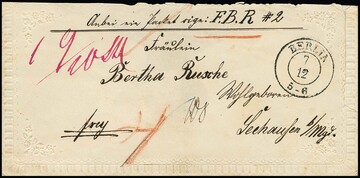 Anbei ein Packet sign: F.B.R #2
Fräulein
Bertha Rusche
Wohlgeboren
frey
Seehausen a/Mgd.
BERLIN
7
12
5-6